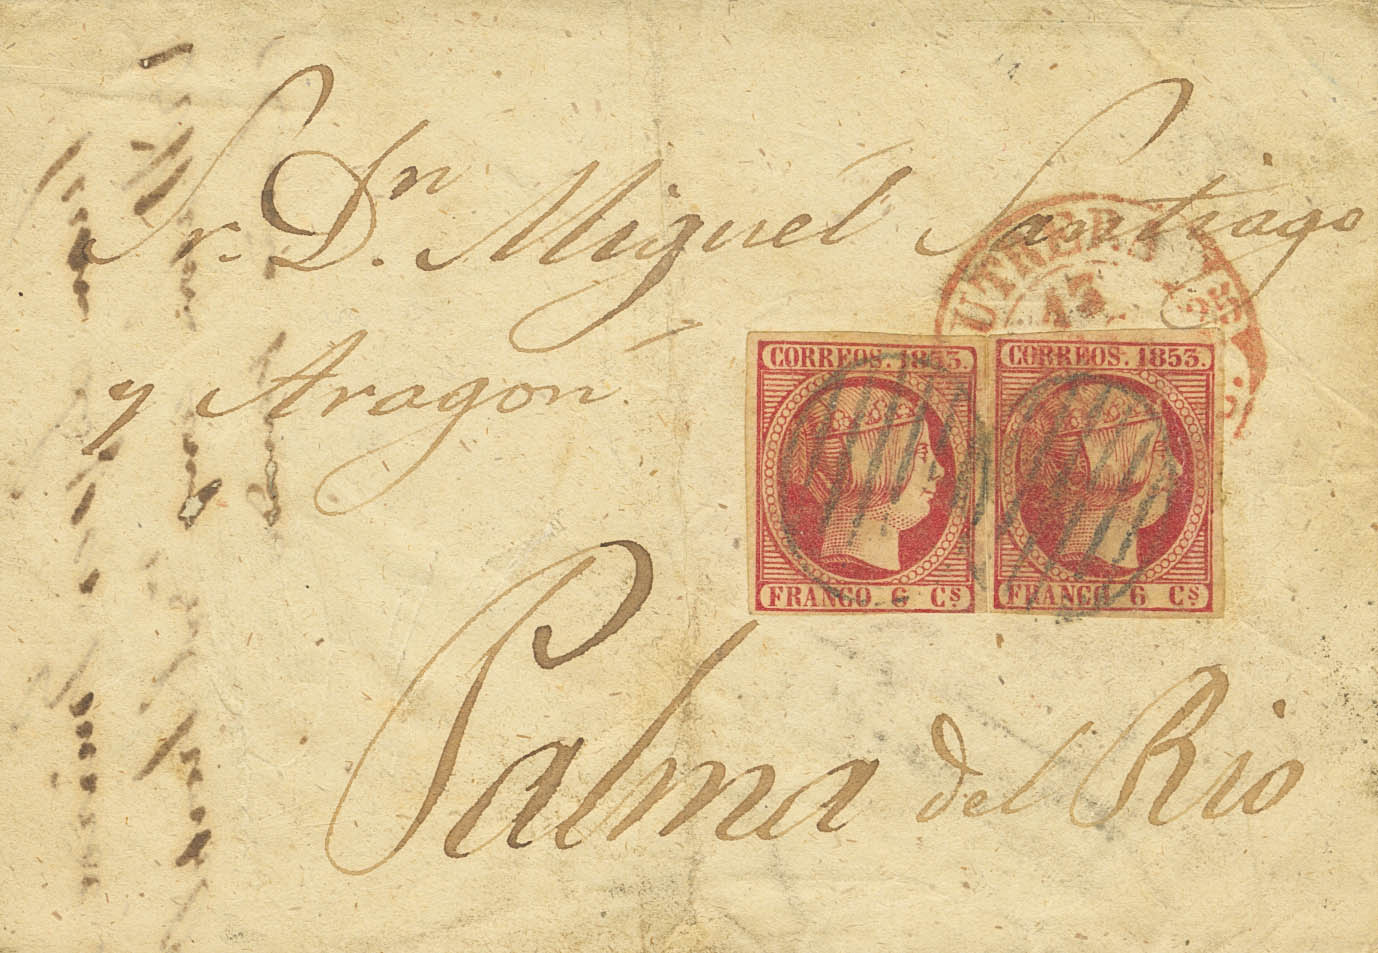 Sr. Dn. Miguel Santiago
y Aragon.
UTRERA
13
CORREOS. 1853. CORREOS. 1853.
FRANCO 6 Cs. FRANCO 6 Cs.
Palma del Rio